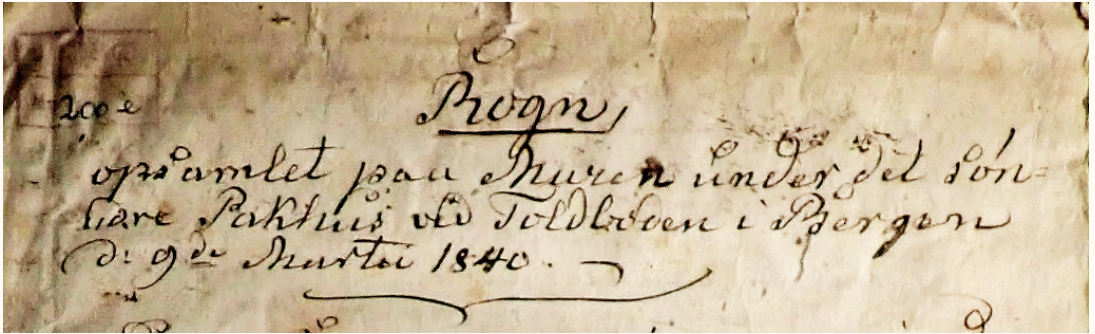 200 e
Rogn,
opsamlet paa Muren under det søn-
dre Pakhus ved Toldboden i Bergen
d: 9de Martii 1840.